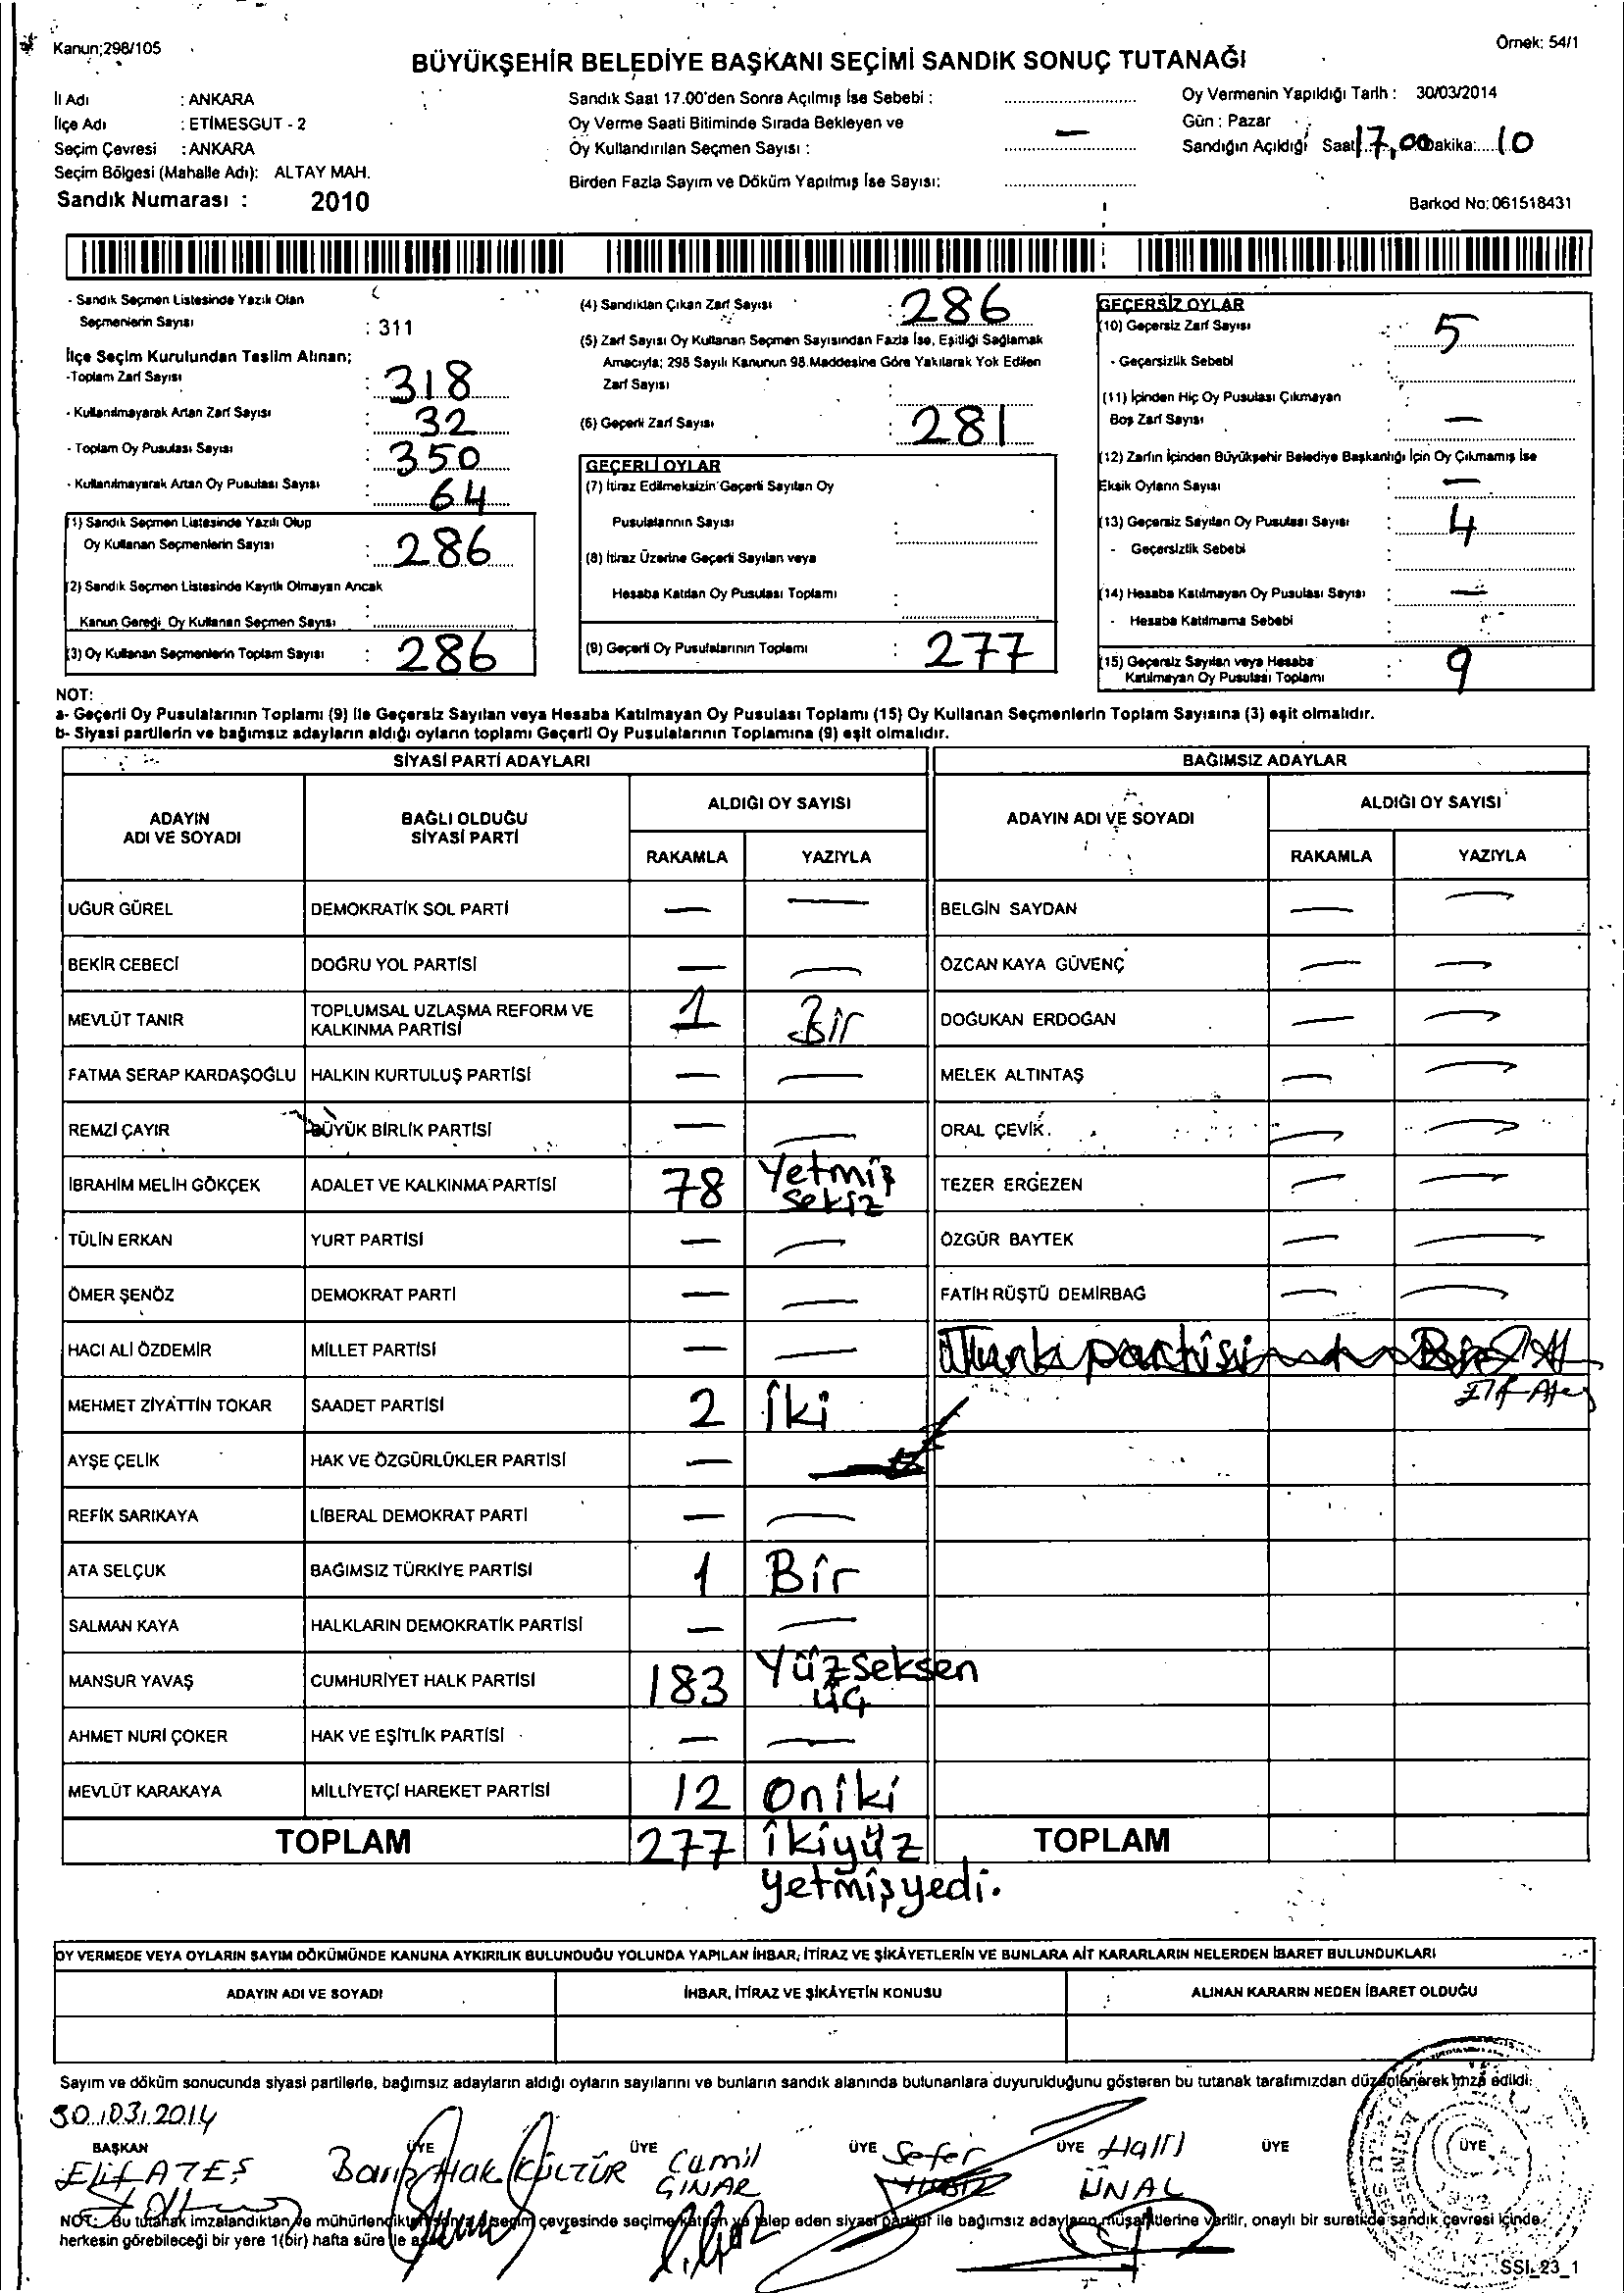 Kanun;298/105
Örnek: 54/1
BÜYÜKŞEHİR BELEDİYE BAŞKANI SEÇİMİ SANDIK SONUÇ TUTANAĞI
İl Adı : ANKARA
İlçe Adı : ETİMESGUT - 2
Seçim Çevresi : ANKARA
Seçim Bölgesi (Mahalle Adı): ALTAY MAH.
Sandık Numarası : 2010
Sandık Saat 17.00'den Sonra Açılmış İse Sebebi :
Oy Verme Saati Bitiminde Sırada Bekleyen ve
Oy Kullandırılan Seçmen Sayısı : —
Birden Fazla Sayım ve Döküm Yapılmış İse Sayısı:
Oy Vermenin Yapıldığı Tarih : 30/03/2014
Gün : Pazar
Sandığın Açıldığı Saat: 17,00 Dakika: 10
Barkod No: 061518431
- Sandık Seçmen Listesinde Yazılı Olan
Seçmenlerin Sayısı : 311
İlçe Seçim Kurulundan Teslim Alınan;
-Toplam Zarf Sayısı : 318
- Kullanılmayarak Artan Zarf Sayısı : 32
- Toplam Oy Pusulası Sayısı : 350
- Kullanılmayarak Artan Oy Pusulası Sayısı : 64
(1) Sandık Seçmen Listesinde Yazılı Olup
Oy Kullanan Seçmenlerin Sayısı : 286
(2) Sandık Seçmen Listesinde Kayıtlı Olmayan Ancak
Kanun Gereği Oy Kullanan Seçmen Sayısı :
(3) Oy Kullanan Seçmenlerin Toplam Sayısı : 286
(4) Sandıktan Çıkan Zarf Sayısı : 286
(5) Zarf Sayısı Oy Kullanan Seçmen Sayısından Fazla İse, Eşitliği Sağlamak
Amacıyla; 298 Sayılı Kanunun 98.Maddesine Göre Yakılarak Yok Edilen
Zarf Sayısı :
(6) Geçerli Zarf Sayısı : 281
GEÇERLİ OYLAR
(7) İtiraz Edilmeksizin Geçerli Sayılan Oy
Pusulalarının Sayısı :
(8) İtiraz Üzerine Geçerli Sayılan veya
Hesaba Katılan Oy Pusulası Toplamı :
(9) Geçerli Oy Pusulalarının Toplamı : 277
GEÇERSİZ OYLAR
(10) Geçersiz Zarf Sayısı : 5
- Geçersizlik Sebebi :
(11) İçinden Hiç Oy Pusulası Çıkmayan
Boş Zarf Sayısı : —
(12) Zarfın İçinden Büyükşehir Belediye Başkanlığı İçin Oy Çıkmamış İse
Eksik Oyların Sayısı : —
(13) Geçersiz Sayılan Oy Pusulası Sayısı : 4
- Geçersizlik Sebebi :
(14) Hesaba Katılmayan Oy Pusulası Sayısı : —
- Hesaba Katılmama Sebebi :
(15) Geçersiz Sayılan veya Hesaba
Katılmayan Oy Pusulası Toplamı : 9
NOT:
a- Geçerli Oy Pusulalarının Toplamı (9) ile Geçersiz Sayılan veya Hesaba Katılmayan Oy Pusulası Toplamı (15) Oy Kullanan Seçmenlerin Toplam Sayısına (3) eşit olmalıdır.
b- Siyasi partilerin ve bağımsız adayların aldığı oyların toplamı Geçerli Oy Pusulalarının Toplamına (9) eşit olmalıdır.
SİYASİ PARTİ ADAYLARI
BAĞIMSIZ ADAYLAR
ADAYIN
ADI VE SOYADI
BAĞLI OLDUĞU
SİYASİ PARTİ
ALDIĞI OY SAYISI
RAKAMLA YAZIYLA
ADAYIN ADI VE SOYADI
ALDIĞI OY SAYISI
RAKAMLA YAZIYLA
UĞUR GÜREL DEMOKRATİK SOL PARTİ — — BELGİN SAYDAN — —
BEKİR CEBECİ DOĞRU YOL PARTİSİ — — ÖZCAN KAYA GÜVENÇ — —
MEVLÜT TANIR TOPLUMSAL UZLAŞMA REFORM VE
KALKINMA PARTİSİ 1 Bir DOĞUKAN ERDOĞAN — —
FATMA SERAP KARDAŞOĞLU HALKIN KURTULUŞ PARTİSİ — — MELEK ALTINTAŞ — —
REMZİ ÇAYIR BÜYÜK BİRLİK PARTİSİ — — ORAL ÇEVİK — —
İBRAHİM MELİH GÖKÇEK ADALET VE KALKINMA PARTİSİ 78 Yetmiş
sekiz TEZER ERGEZEN — —
TÜLİN ERKAN YURT PARTİSİ — — ÖZGÜR BAYTEK — —
ÖMER ŞENÖZ DEMOKRAT PARTİ — — FATİH RÜŞTÜ DEMİRBAĞ — —
HACI ALİ ÖZDEMİR MİLLET PARTİSİ — — partisi Bir
Elif Ateş
MEHMET ZİYATTİN TOKAR SAADET PARTİSİ 2 İki
AYŞE ÇELİK HAK VE ÖZGÜRLÜKLER PARTİSİ —
REFİK SARIKAYA LİBERAL DEMOKRAT PARTİ — —
ATA SELÇUK BAĞIMSIZ TÜRKİYE PARTİSİ 1 Bir
SALMAN KAYA HALKLARIN DEMOKRATİK PARTİSİ — —
MANSUR YAVAŞ CUMHURİYET HALK PARTİSİ 183 Yüzseksen
üç
AHMET NURİ ÇOKER HAK VE EŞİTLİK PARTİSİ — —
MEVLÜT KARAKAYA MİLLİYETÇİ HAREKET PARTİSİ 12 Oniki
TOPLAM 277 ikiyüz
yetmişyedi.
TOPLAM
OY VERMEDE VEYA OYLARIN SAYIM DÖKÜMÜNDE KANUNA AYKIRILIK BULUNDUĞU YOLUNDA YAPILAN İHBAR, İTİRAZ VE ŞİKÂYETLERİN VE BUNLARA AİT KARARLARIN NELERDEN İBARET BULUNDUKLARI
ADAYIN ADI VE SOYADI İHBAR, İTİRAZ VE ŞİKÂYETİN KONUSU ALINAN KARARIN NEDEN İBARET OLDUĞU
Sayım ve döküm sonucunda siyasi partilerle, bağımsız adayların aldığı oyların sayılarını ve bunların sandık alanında bulunanlara duyurulduğunu gösteren bu tutanak tarafımızdan düzenlenerek imza edildi:
30.03.2014
BAŞKAN ÜYE ÜYE ÜYE ÜYE ÜYE ÜYE
ELİF ATEŞ Barış Hak KÜLTÜR Camil
ÇINAR Sefer Halil
ÜNAL
NOT: Bu tutanak imzalandıktan ve mühürlendikten sonra seçim çevresinde seçime katılan ve talep eden siyasi partiler ile bağımsız adayların müşahitlerine verilir, onaylı bir suretide sandık çevresi içinde
herkesin görebileceği bir yere 1(bir) hafta süre ile asılır.
SSI_23_1